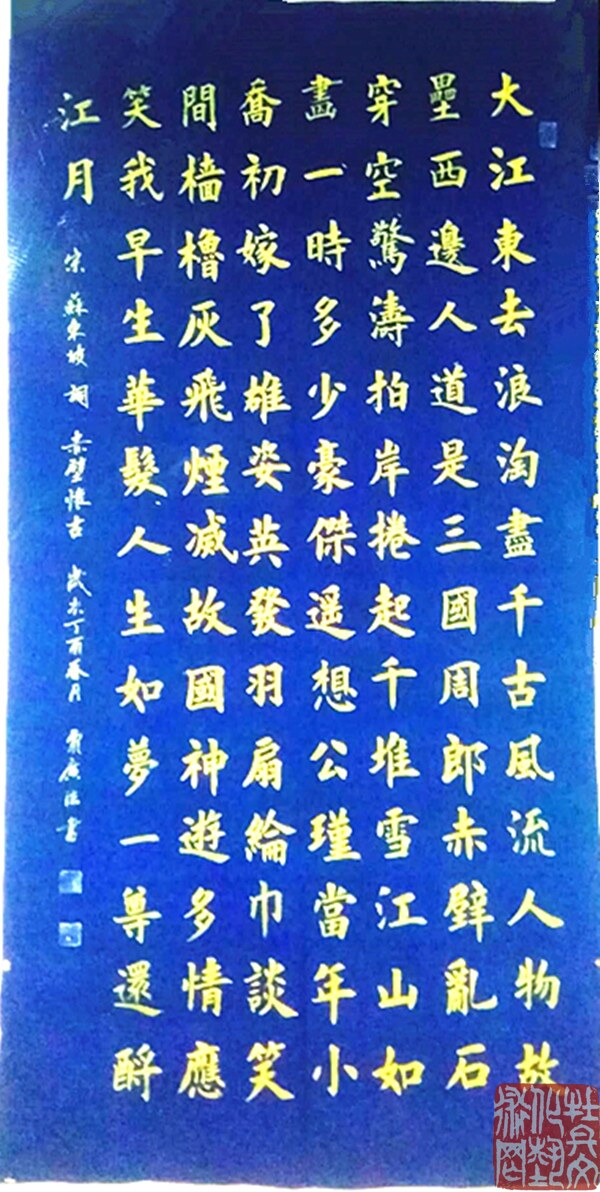 大江東去浪淘盡千古風流人物故
壘西邊人道是三國周郎赤壁亂石
穿空驚濤拍岸捲起千堆雪江山如
畫一時多少豪傑遥想公瑾當年小
喬初嫁了雄姿英發羽扇綸巾談笑
間檣櫓灰飛煙滅故國神遊多情應
笑我早生華髮人生如夢一尊還酹
江月
宋蘇東坡詞赤壁懷古歲在丁酉春月書